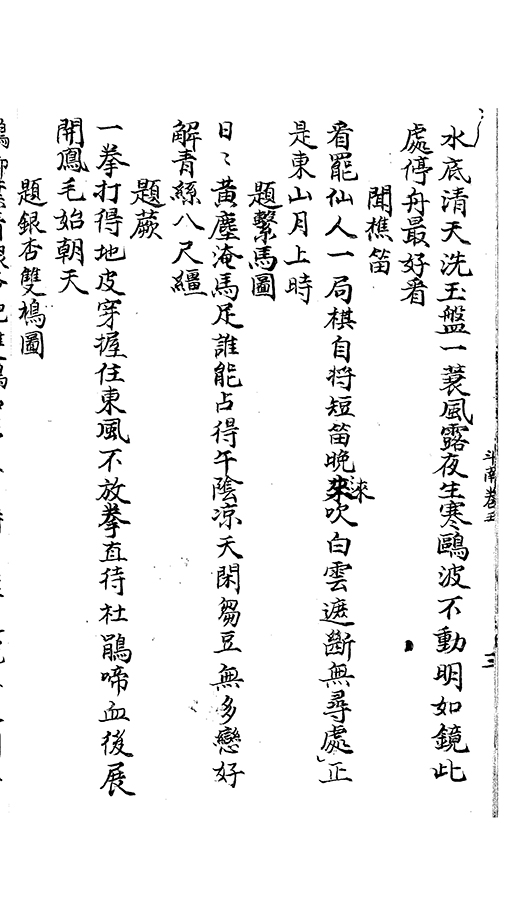 斗南卷五
三
水底清天洗玉盤一蓑風露夜生寒鷗波不動明如鏡此
處停舟最好看
聞樵笛
看罷仙人一局棋自將短笛晚來吹白雲遮斷無尋處正
是東山月上時
題繫馬圖
日〻黃塵淹馬足誰能占得午陰凉天閑芻豆無多戀好
解青絲八尺繮
題蕨
一拳打得地皮穿握住東風不放拳直待杜鵑啼血後展
開鳳毛始朝天
題銀杏雙鵅圖